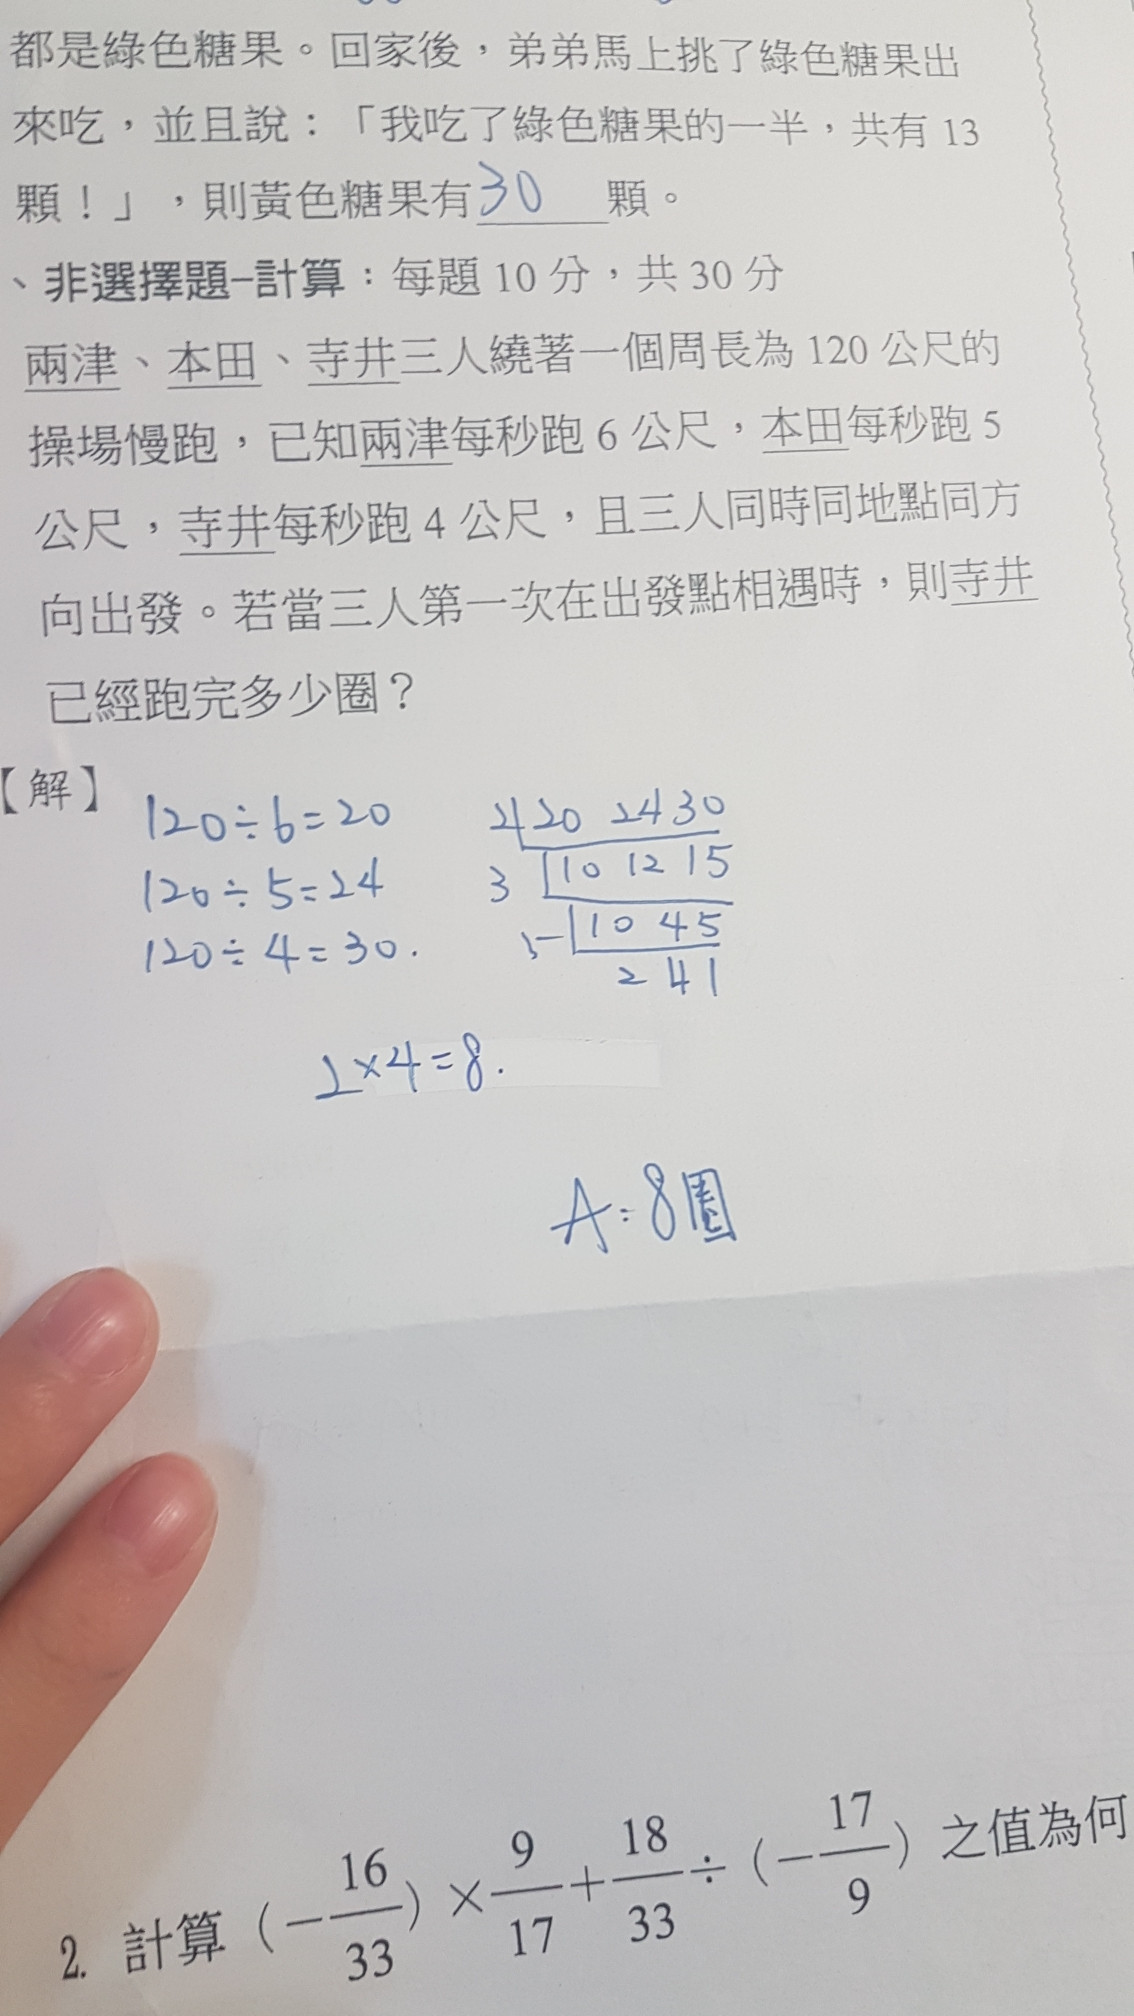 都是綠色糖果。回家後，弟弟馬上挑了綠色糖果出
來吃，並且說：「我吃了綠色糖果的一半，共有 13
顆！」，則黃色糖果有30顆。
、非選擇題-計算：每題 10 分，共 30 分
兩津、本田、寺井三人繞著一個周長為 120 公尺的
操場慢跑，已知兩津每秒跑 6 公尺，本田每秒跑 5
公尺，寺井每秒跑 4 公尺，且三人同時同地點同方
向出發。若當三人第一次在出發點相遇時，則寺井
已經跑完多少圈？
【解】
120÷6=20
120÷5=24
120÷4=30.
2 20 24 30
3 10 12 15
5 10 4 5
2 4 1
2×4=8.
A:8圈
2. 計算（−16/33）×9/17+18/33÷（−17/9）之值為何